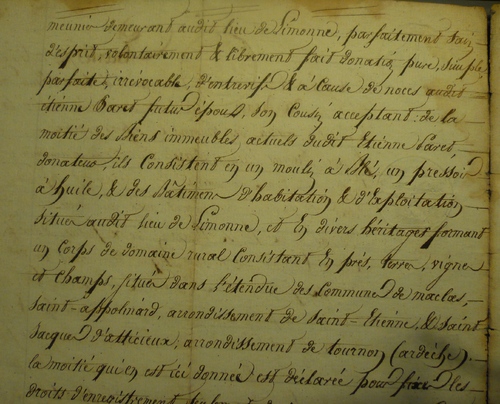 meunier demeurant audit lieu de Limonne, parfaitement sain
d'esprit, volontairement & librement fait donation pure, simple,
parfaite, irrévocable, d'entrevifs & à Cause de noces audit
étienne Paret futur époux, son Cousin acceptant: de la
moitié des Biens immeubles, actuels dudit Etienne Paret
donateur; ils Consistent en un moulin à blé, un pressoir
à huile, & des Bâtimens d'habitation & d'Exploitation
situés audit lieu de Limonne, et En divers héritages formant
un Corps de domaine rural Consistant En prés, terres, vignes
et Champs, situés dans l'étendue des Communes de maclas,
Saint-appolinard, arrondissement de Saint-Etienne, & Saint
Jacques d'atticieux, arrondissement de tournon (ardèche).
la moitié qui en est ici donnée est déclarée pour fixer les
droits d'enregistrement